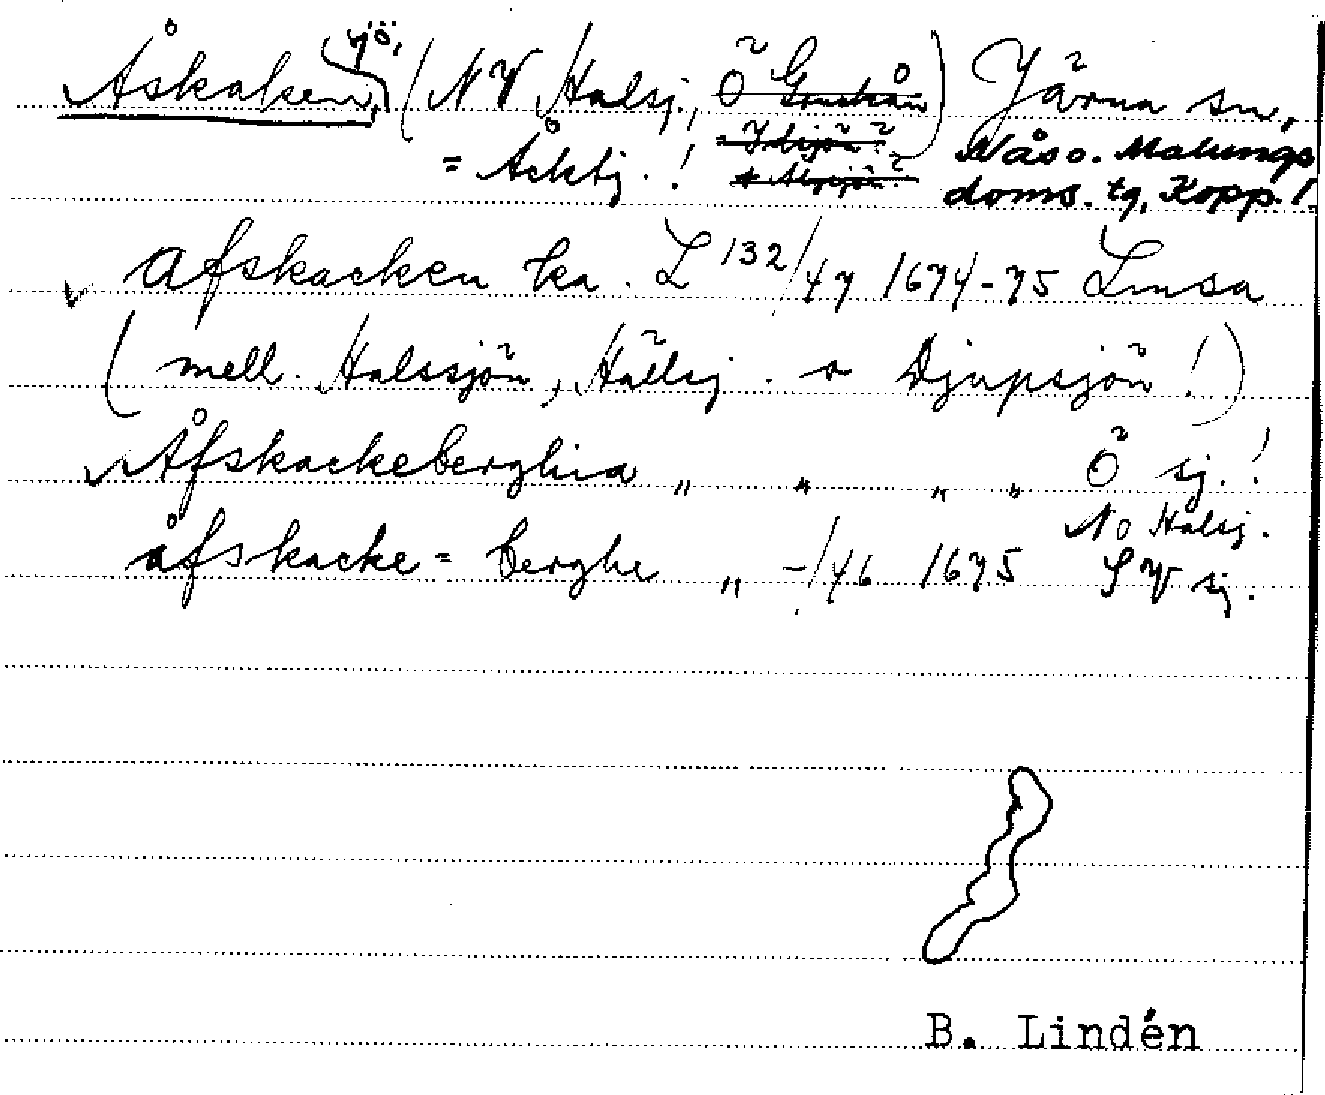 Åskaken, sjö, (NV Halsj., Ö Granån) Järna sn,
= Åcksj.! Näs o. Malungs
doms. tg, Kopp. l.
Afskacken ka. L 132/47 1674-75 Limsa
(mell. Halssjön, Hällsj. o Djupsjön!)
Åfskackeberghia „ „ „ „ Ö sj.!
NO Halsj.
åfskacke = berghe „ -/46 1675 SV sj.
B. Lindén